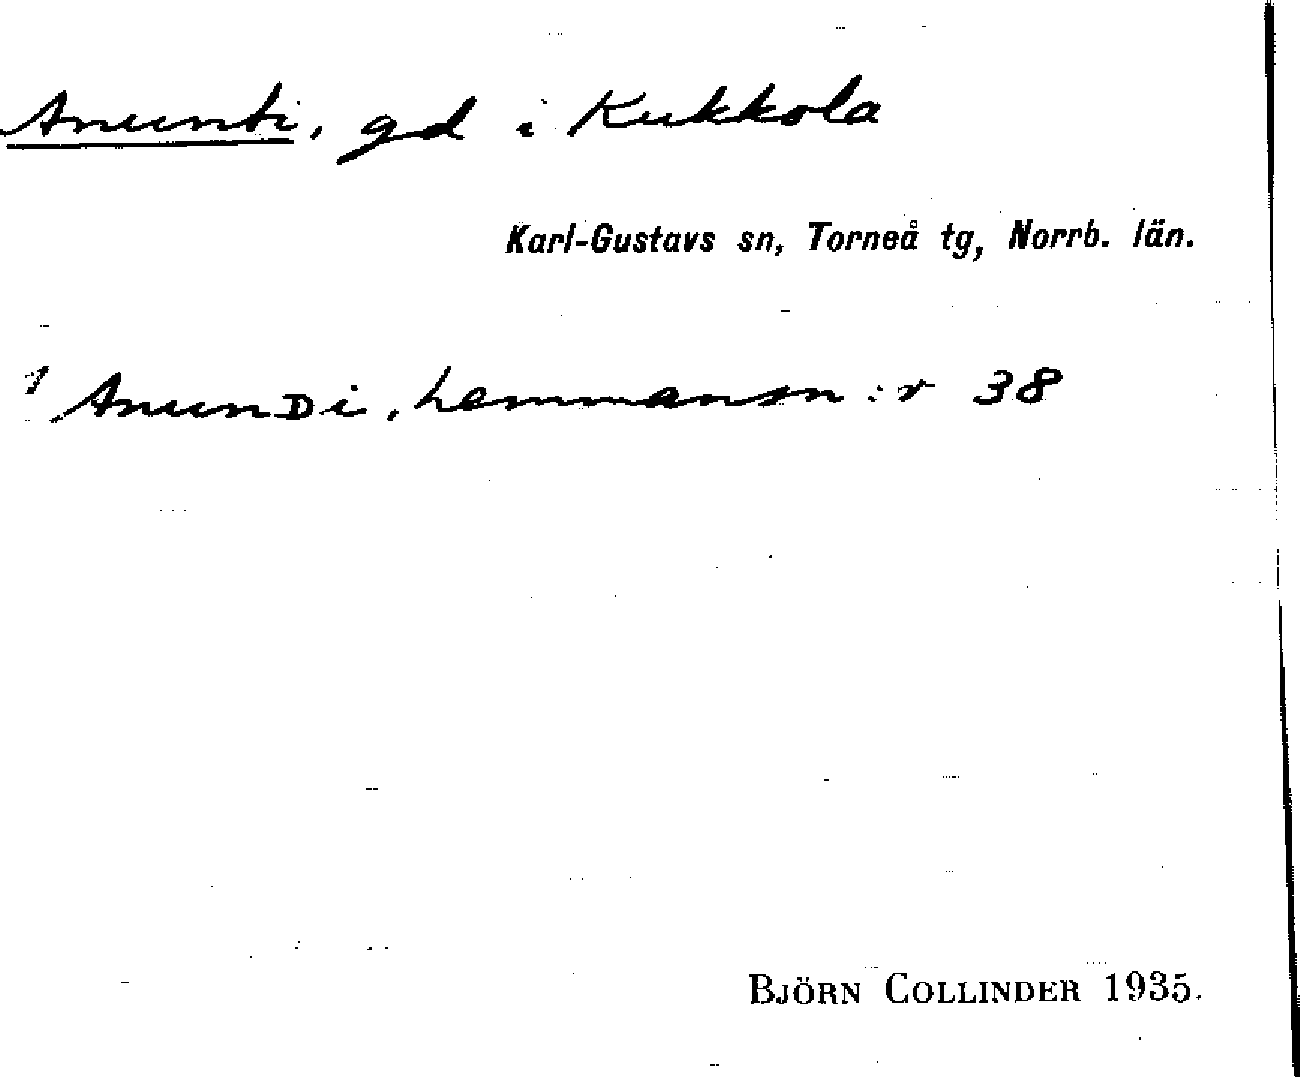 Anunti, gd i Kukkola
Karl-Gustavs sn, Torneå tg, Norrb. län.
1 AnunDi, hemmansn:r 38
BJÖRN COLLINDER 1935.